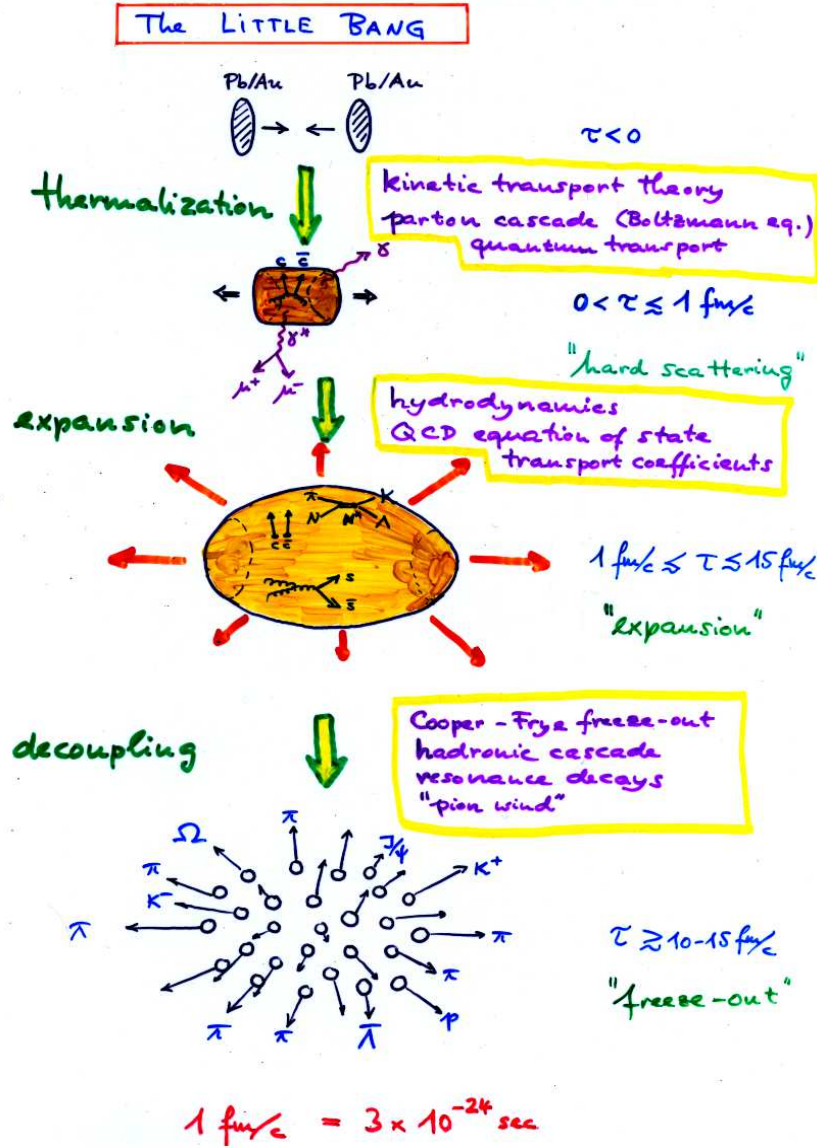 The LITTLE BANG
Pb/Au Pb/Au
τ<0
thermalization
kinetic transport theory
parton cascade (Boltzmann eq.)
quantum transport
c c̅ γ
0 < τ ≲ 1 fm/c
γ*
μ⁺ μ⁻
"hard scattering"
expansion
hydrodynamics
QCD equation of state
transport coefficients
π K
N N* Λ
c c̅
s
s̅
1 fm/c ≲ τ ≲ 15 fm/c
"expansion"
decoupling
Cooper-Frye freeze-out
hadronic cascade
resonance decays
"pion wind"
Ω π J/ψ
π K⁺
K⁻
π π
π
τ ≳ 10-15 fm/c
"freeze-out"
π π Λ̅ p
1 fm/c = 3 x 10⁻²⁴ sec